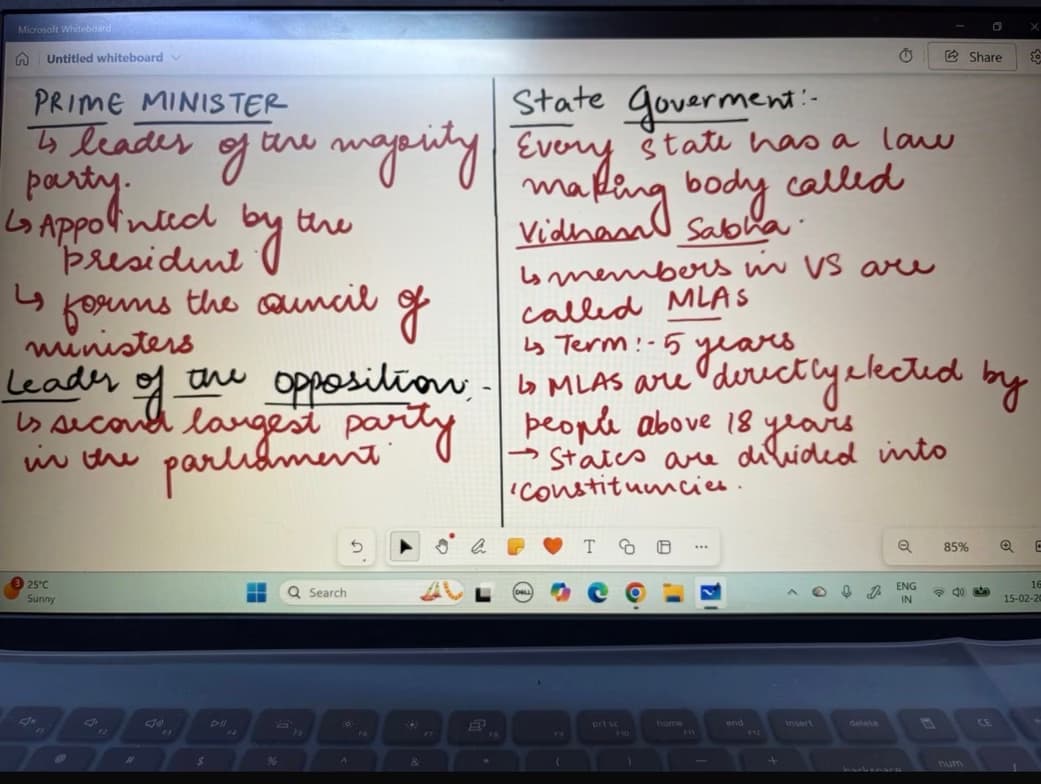 Microsoft Whiteboard
Untitled whiteboard
Share
PRIME MINISTER
↳ leader of the majority
party.
↳ Appointed by the
president
↳ forms the council of
ministers
Leader of the opposition:-
↳ second largest party
in the parliament
State Goverment:-
Every state has a law
making body called
Vidhan Sabha.
↳ members in VS are
called MLAs
↳ Term:- 5 years
↳ MLAs are directly elected by
people above 18 years
→ States are divided into
constituencies.
T
85%
3
25°C
Sunny
Search
DELL
ENG
IN
16
15-02-20
F1
F2
F3
F4
F5
F6
F7
F8
F9
prt sc
F10
home
F11
end
F12
insert
delete
CE
#
$
%
^
&
*
(
)
backspace
num